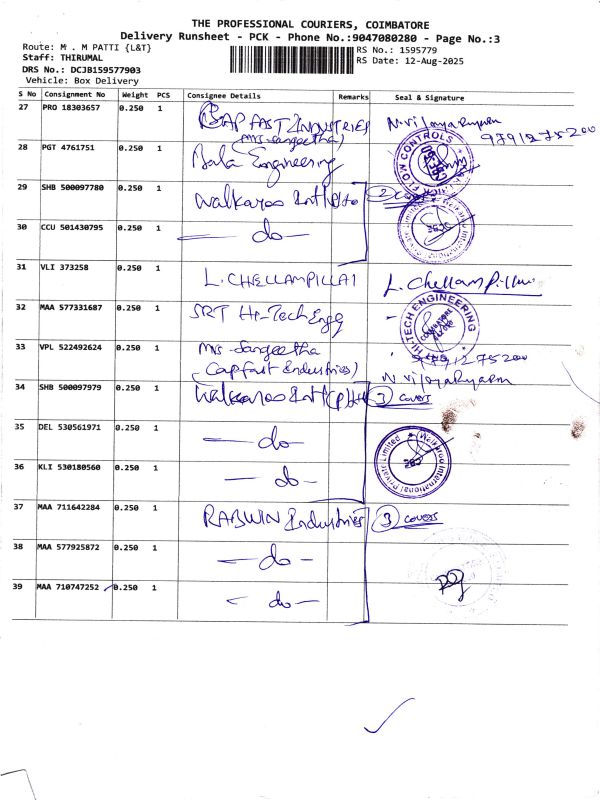 THE PROFESSIONAL COURIERS, COIMBATORE
Delivery Runsheet - PCK - Phone No.:9047080280 - Page No.:3
Route: M . M PATTI {L&T}
RS No.: 1595779
Staff: THIRUMAL
RS Date: 12-Aug-2025
DRS No.: DCJB159577903
Vehicle: Box Delivery
S No Consignment No Weight PCS Consignee Details Remarks Seal & Signature
27 PRO 18303657 0.250 1 CAPFAST INDUSTRIES N. Vijayaryarm
(Mrs. Sangeetha) 9791275200
28 PGT 4761751 0.250 1 Bala Engineering FLOW CONTROLS
29 SHB 500097780 0.250 1 Walkaroo Int (P) Ltd 2 covers
30 CCU 501430795 0.250 1 — do — Walkaroo International Private Limited CBE
31 VLI 373258 0.250 1 L. CHELLAMPILLAI L. Chellampillai
32 MAA 577331687 0.250 1 SRT Hi-Tech Engg HI-TECH ENGINEERING COIMBATORE
33 VPL 522492624 0.250 1 Mrs. Sangeetha 9791275200
(Capfast Industries) N Vijayaryarm
34 SHB 500097979 0.250 1 Walkaroo Int (P) Ltd 3 covers
35 DEL 530561971 0.250 1 — do — Walkaroo International Private Limited CBE
36 KLI 530180560 0.250 1 — do —
37 MAA 711642284 0.250 1 RABWIN Industries 3 covers
38 MAA 577925872 0.250 1 — do —
39 MAA 710747252 0.250 1 — do —